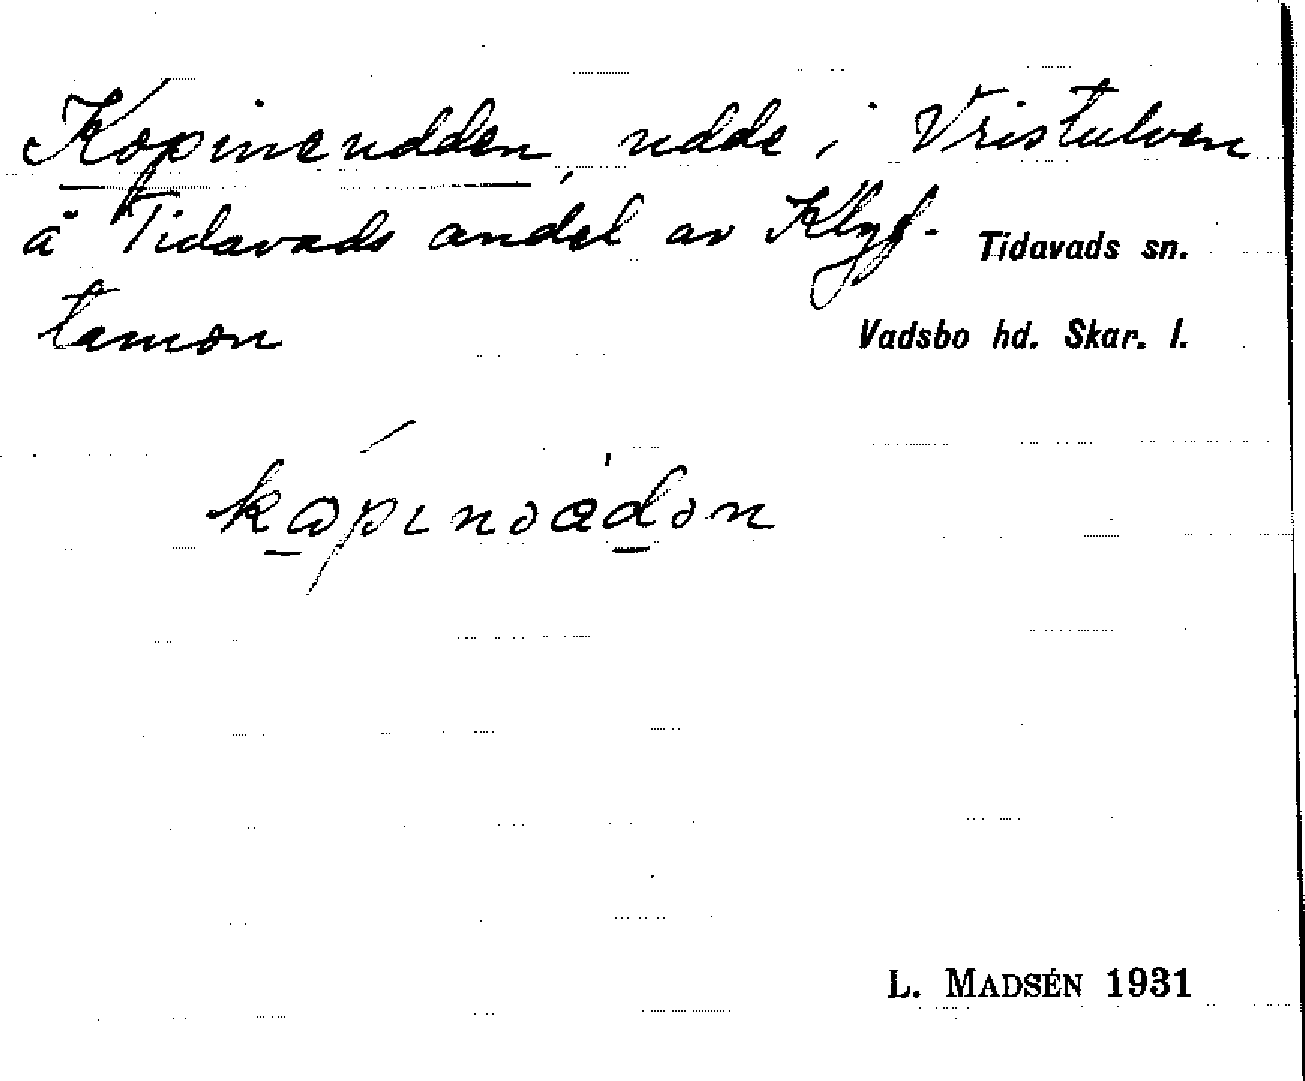 Kopineudden, udde i Vristulven
å Tidavads andel av Klyf-
Tidavads sn.
tamon
Vadsbo hd. Skar. l.
L. MADSÉN 1931